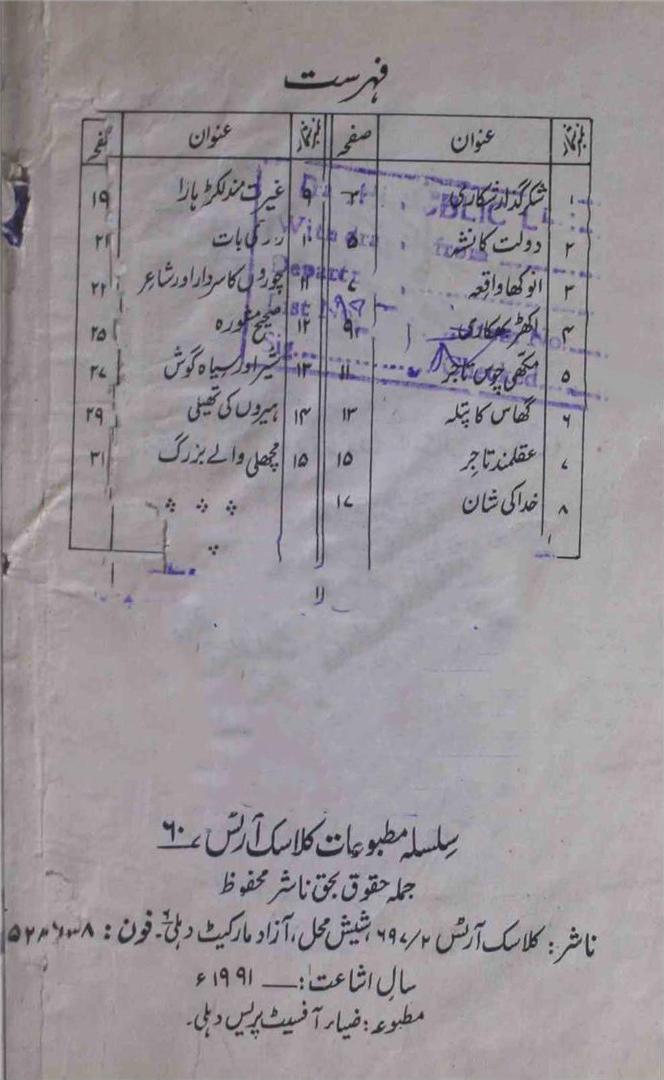 فہرست
نمبرشمار عنوان صفحہ نمبرشمار عنوان صفحہ
۱ شکر گذار شکاری ۳ ۹ غیرت مند لکڑہارا ۱۹
۲ دولت کا نشہ ۵ ۱۰ کی بات ۲۱
۳ انوکھا واقعہ ۱۱ چوروں کا سردار اور شاعر ۲۲
۴ اکھڑ بھکاری ۹ ۱۲ صحیح مشورہ ۲۵
۵ مکھی چوس تاجر ۱۱ ۱۳ شیر اور سیاہ گوش ۲۷
۶ گھاس کا پتلہ ۱۳ ۱۴ ہیروں کی تھیلی ۲۹
۷ عقلمند تاجر ۱۵ ۱۵ مچھلی والے بزرگ ۳۱
۸ خدا کی شان ۱۷
PUBLIC
from
Depart
No.
سلسلہ مطبوعات کلاسک آرٹس ۶۰
جملہ حقوق بحق ناشر محفوظ
ناشر: کلاسک آرٹس ۶۹۷/۲ شیش محل، آزاد مارکیٹ دہلی۶۔ فون:
سال اشاعت: ـــــ ۱۹۹۱ء
مطبوعہ: ضیاء آفسیٹ پریس دہلی۔